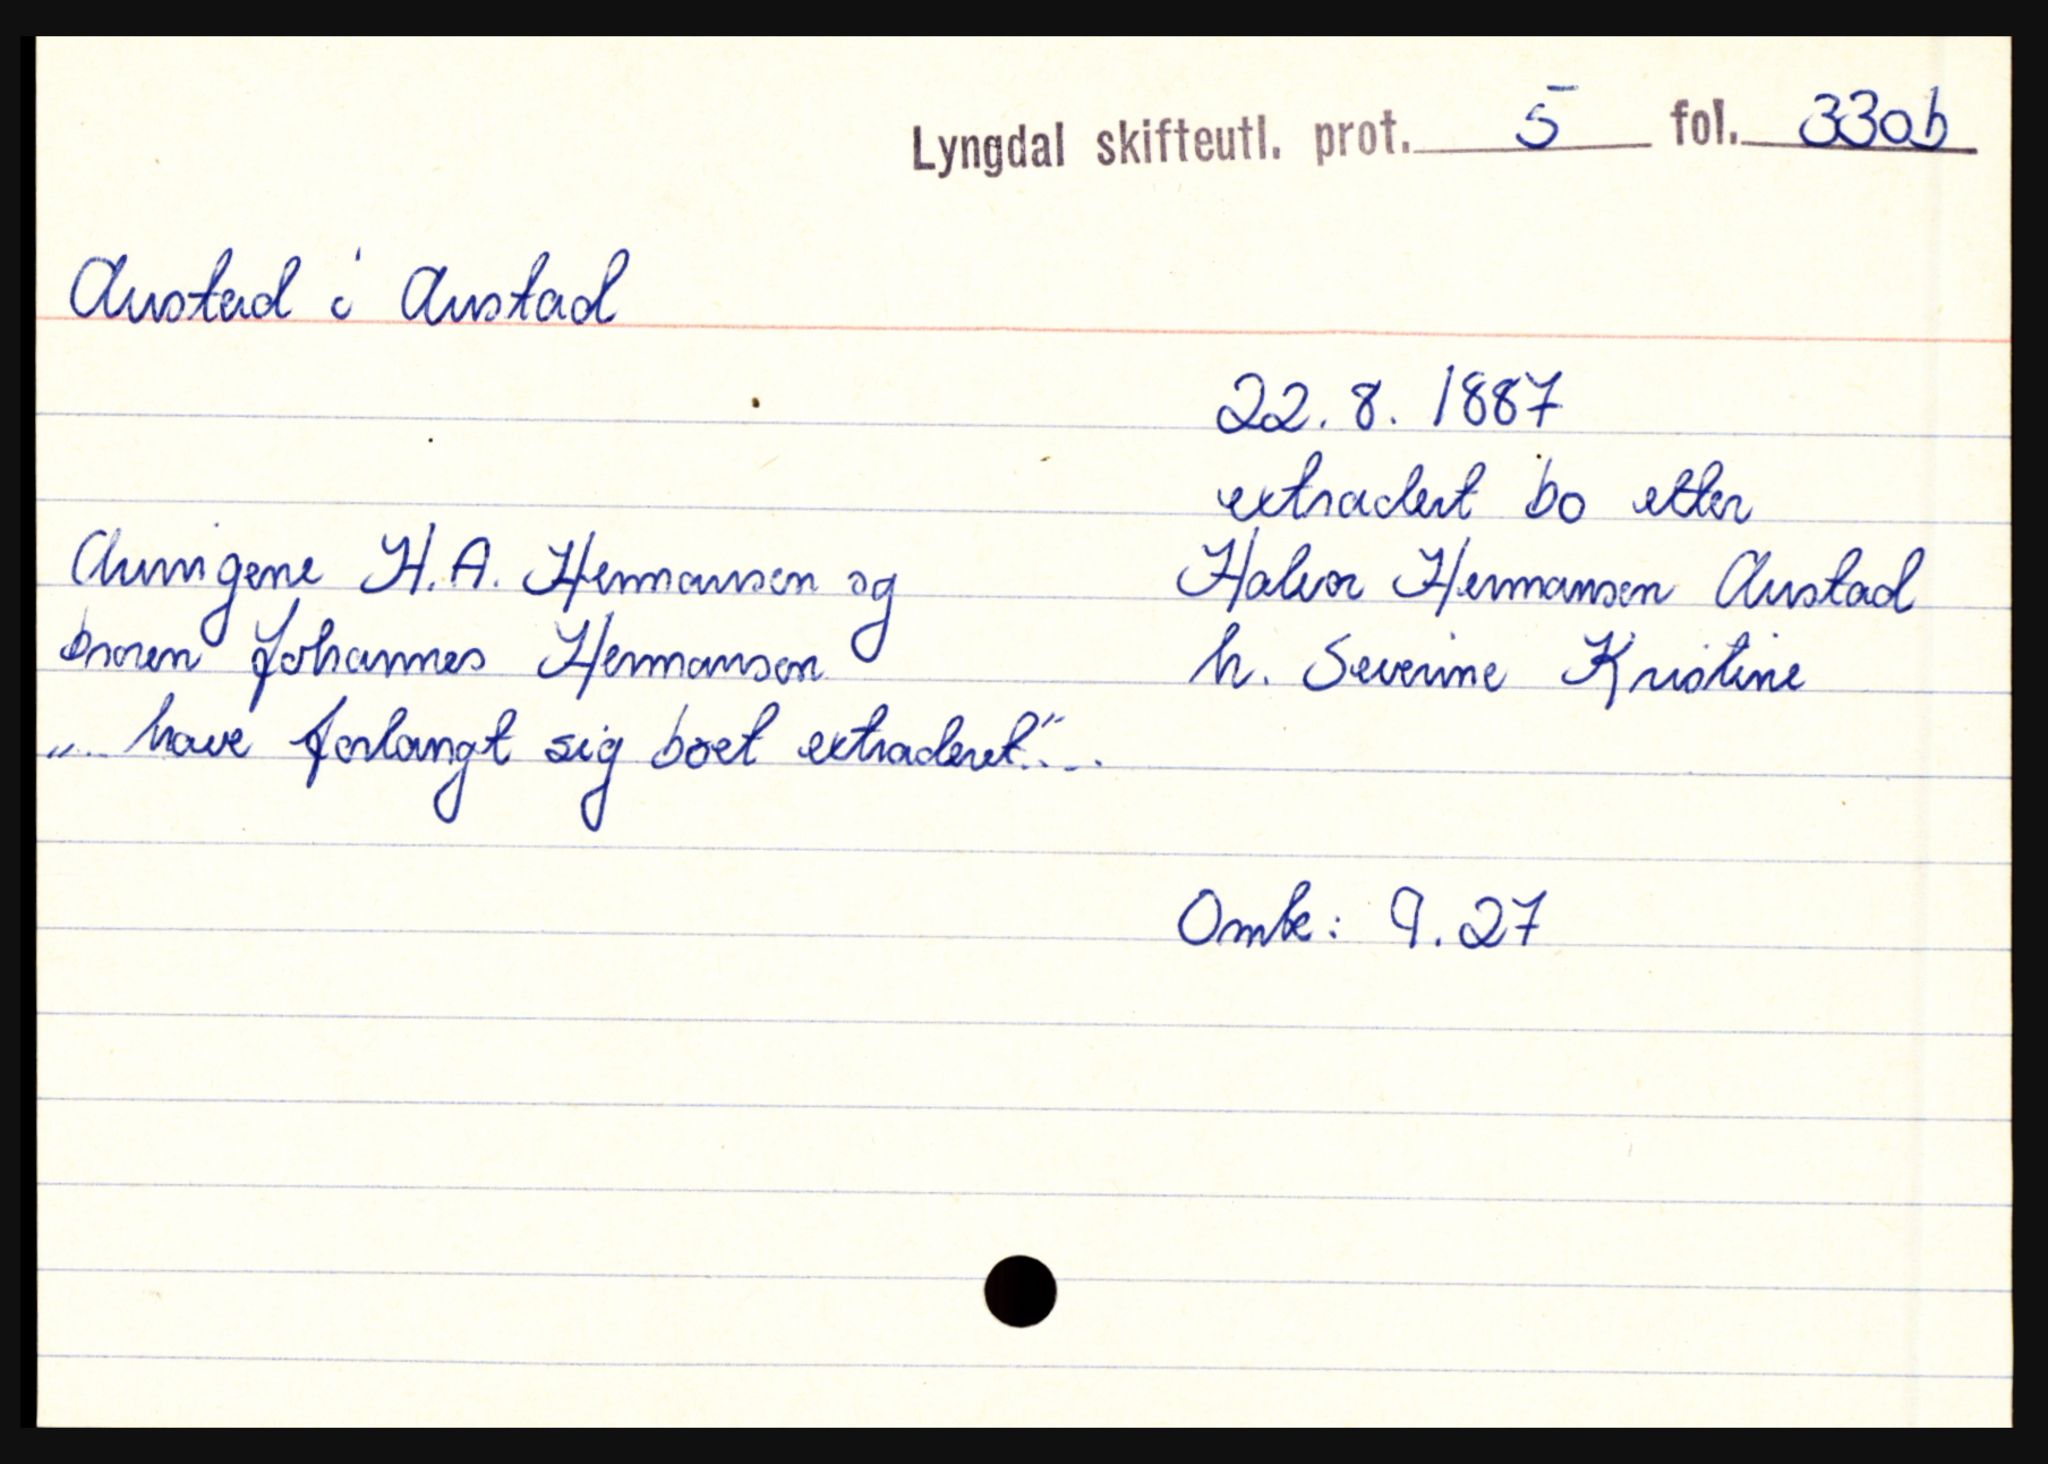 Lyngdal skifteutl. prot. 5 fol. 330b
Austad i Austad
22. 8. 1887
extradert bo etter
Halvor Hermansen Austad
h. Severine Kristine
Arvingene H. A. Hermansen og
broren Johannes Hermansen
"... have forlangt sig boet extraderet"...
Omk: 9.27